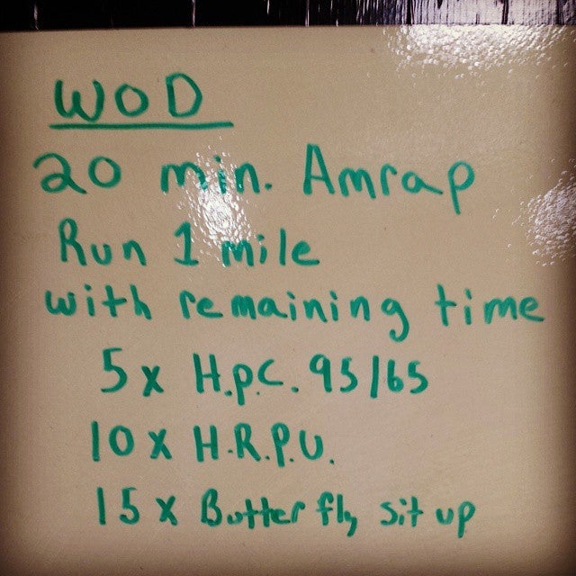 WOD
20 min. Amrap
Run 1 mile
with remaining time
5 x H.P.C. 95/65
10 x H.R.P.U.
15 x Butterfly sit up